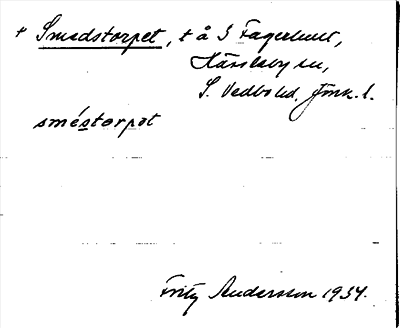 + Smedstorpet, t å S Fagerhult,
Hässleby sn,
S. Vedbo hd. Jönk. l.
sméstorpet
Fritz Andersson 1934.